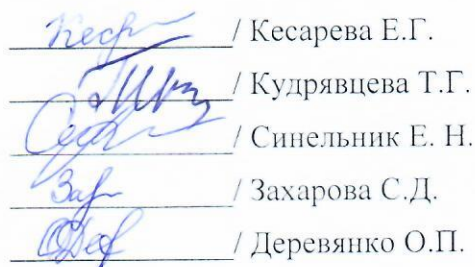 / Кесарева Е.Г.
/ Кудрявцева Т.Г.
/ Синельник Е. Н.
/ Захарова С.Д.
/ Деревянко О.П.